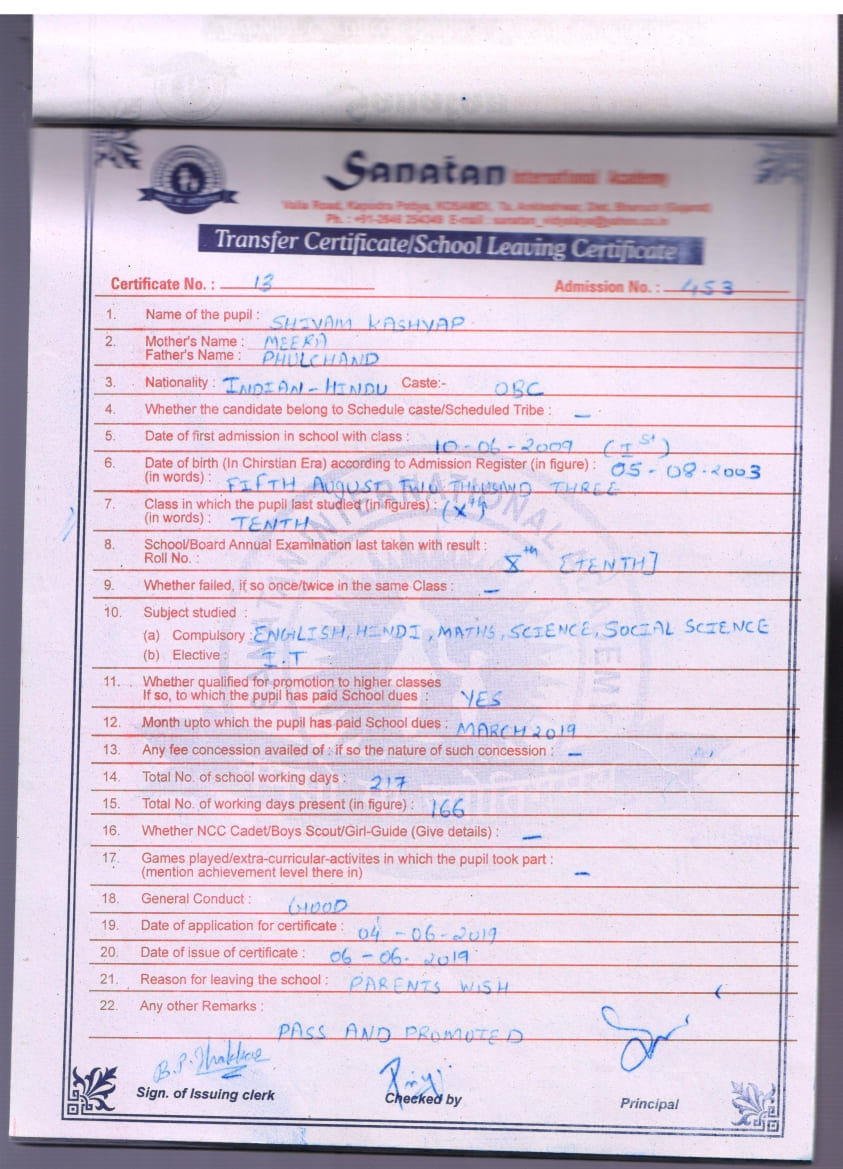 Sanatan International Academy
Valia Road, Kapodra Patiya, KOSAMDI, Ta. Ankleshwar, Dist. Bharuch (Gujarat)
Ph. : +91-2646 254349 E-mail : sanatan_vidyalaya@yahoo.co.in
Transfer Certificate/School Leaving Certificate
Certificate No. : 13 Admission No. : 453
1. Name of the pupil : SHIVAM KASHYAP
2. Mother's Name : MEERA
Father's Name : PHULCHAND
3. Nationality : INDIAN-HINDU Caste:- OBC
4. Whether the candidate belong to Schedule caste/Scheduled Tribe : –
5. Date of first admission in school with class : 10-06-2009 (Ist)
6. Date of birth (In Chirstian Era) according to Admission Register (in figure) : 05-08-2003
(in words) : FIFTH AUGUST TWO THOUSAND THREE
7. Class in which the pupil last studied (in figures) : (Xth)
(in words) : TENTH
8. School/Board Annual Examination last taken with result :
Roll No. : Xth [TENTH]
9. Whether failed, if so once/twice in the same Class : –
10. Subject studied :
(a) Compulsory : ENGLISH, HINDI, MATHS, SCIENCE, SOCIAL SCIENCE
(b) Elective : I.T
11. Whether qualified for promotion to higher classes
If so, to which the pupil has paid School dues : YES
12. Month upto which the pupil has paid School dues : MARCH 2019
13. Any fee concession availed of : if so the nature of such concession : –
14. Total No. of school working days : 217
15. Total No. of working days present (in figure) : 166
16. Whether NCC Cadet/Boys Scout/Girl-Guide (Give details) : –
17. Games played/extra-curricular-activites in which the pupil took part :
(mention achievement level there in) –
18. General Conduct : GOOD
19. Date of application for certificate : 04-06-2019
20. Date of issue of certificate : 06-06-2019
21. Reason for leaving the school : PARENTS WISH
22. Any other Remarks :
PASS AND PROMOTED
B.P. Thakkar
Sign. of Issuing clerk Checked by Principal
SANATAN INTERNATIONAL ACADEMY